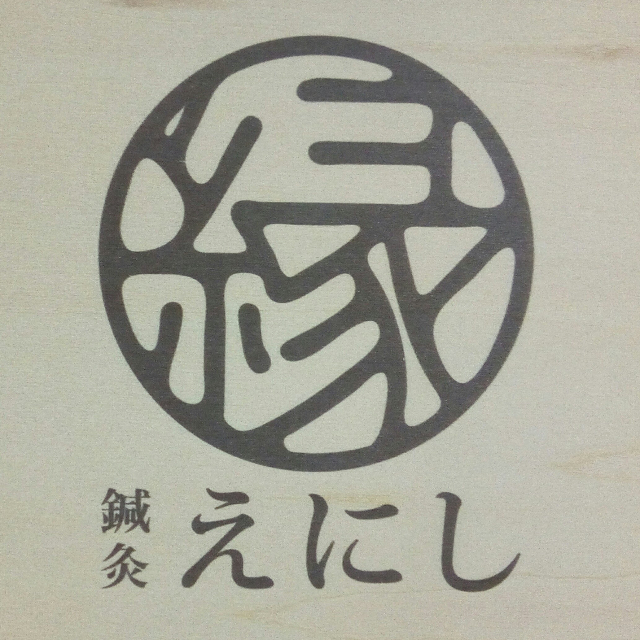 縁
鍼灸 えにし